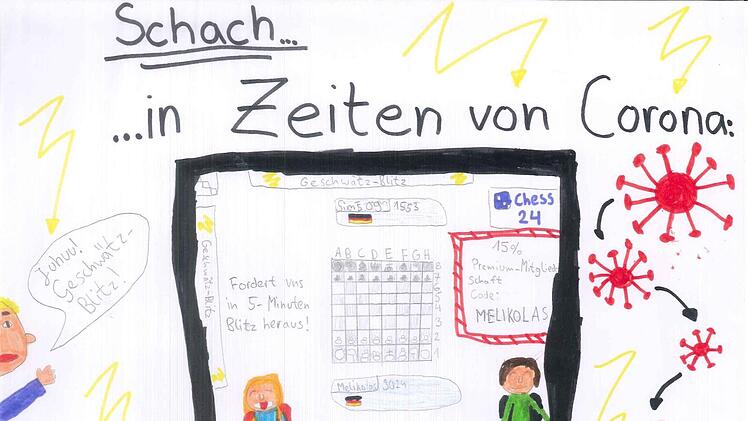 Schach...
...in Zeiten von Corona:
Geschwätz-Blitz
Juhuu!
Geschwätz-
Blitz!
Geschwätz-Blitz
Fordert uns
in 5-Minuten
Blitz heraus!
1553
ABCDEFGH
8
7
6
5
4
3
2
1
Melikolas 3024
Chess
24
15%
Premium-Mitglied
schaft
Code:
MELIKOLAS